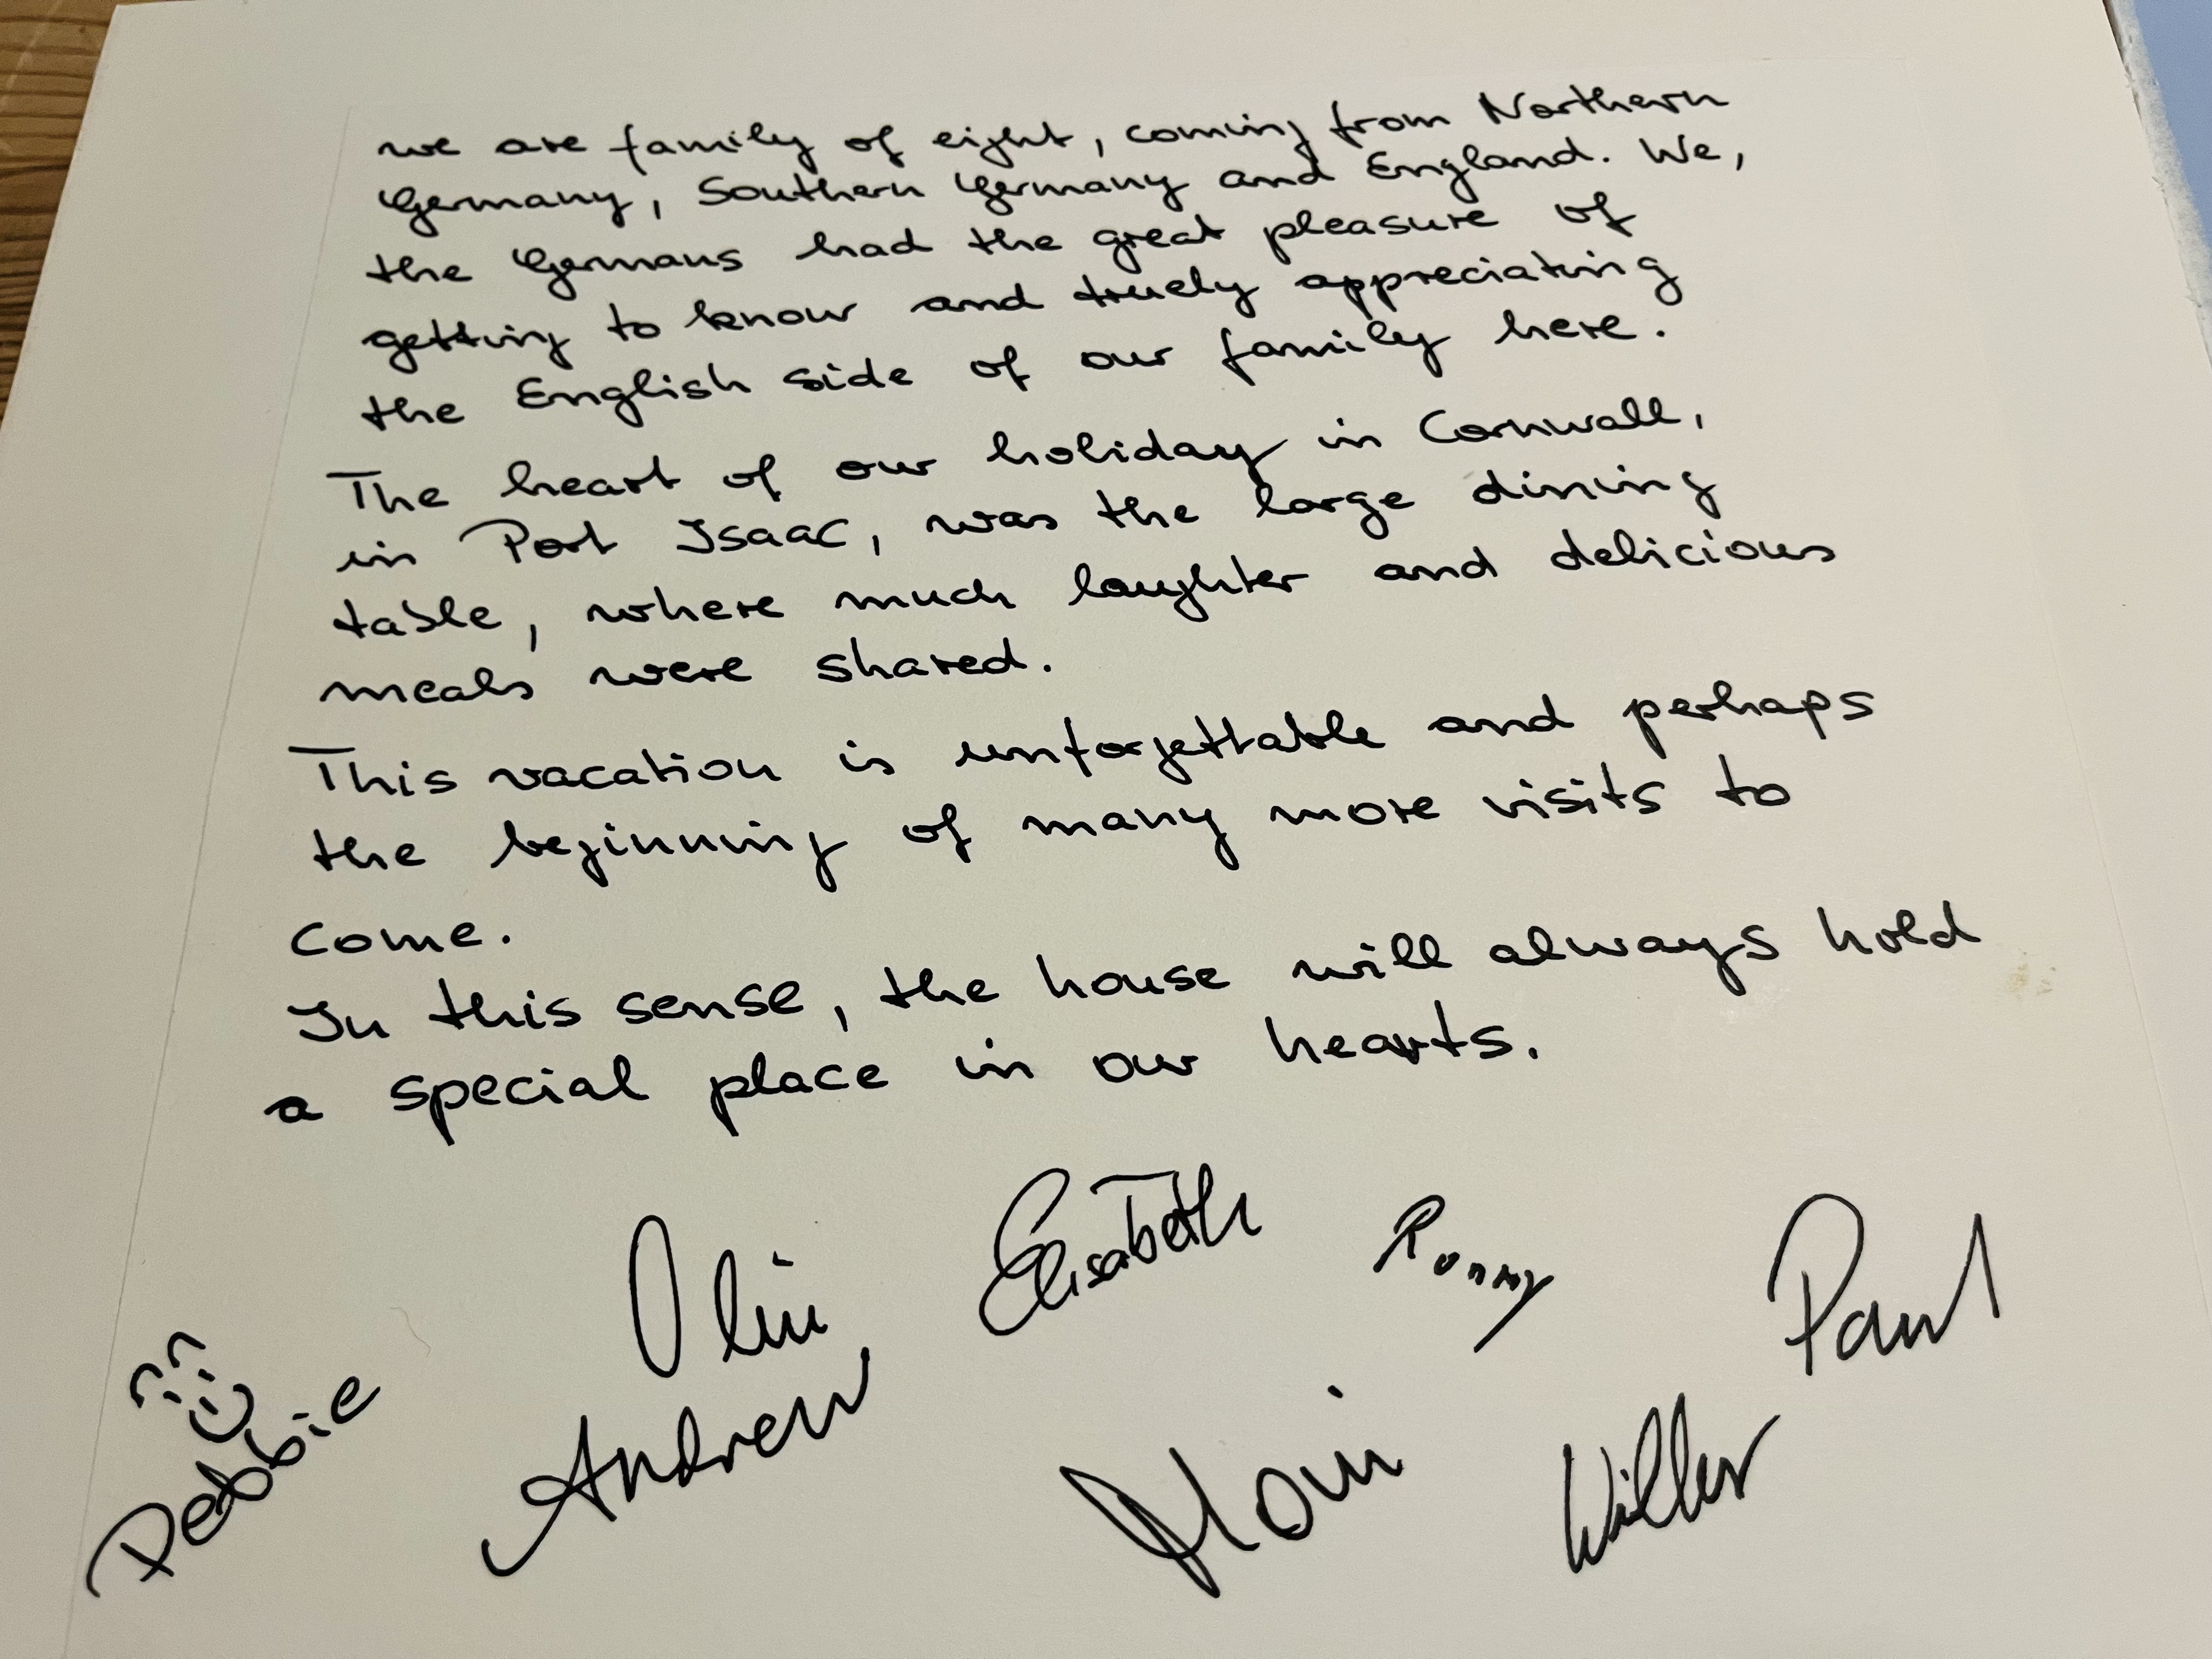 we are family of eight, coming from Northern
Germany, Southern Germany and England. We,
the Germans had the great pleasure of
getting to know and truely appreciating
the English side of our family here.
The heart of our holiday in Cornwall,
in Port Isaac, was the large dining
table, where much laughter and delicious
meals were shared.
This vacation is unforgettable and perhaps
the beginning of many more visits to
come.
In this sense, the house will always hold
a special place in our hearts.
Elisabeth Ronny Paul
Debbie Andrew